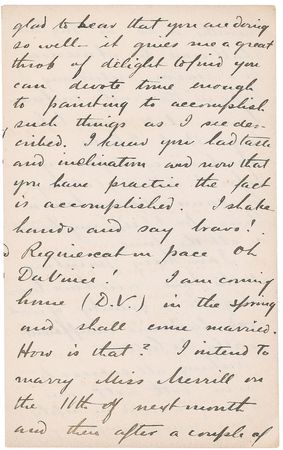 glad to hear that you are doing
so well - it gives me a great
throb of delight to find you
can devote time enough
to painting to accomplish
such things as I see des-
cribed. I knew you had taste
and inclination and now that
you have practice the fact
is accomplished. I shake
hands and say bravo!
Requiescat in pace Oh
Da Vinci! I am coming
home (D.V.) in the spring
and shall come married.
How is that? I intend to
marry Miss Merrill on
the 11th of next month
and then after a couple of